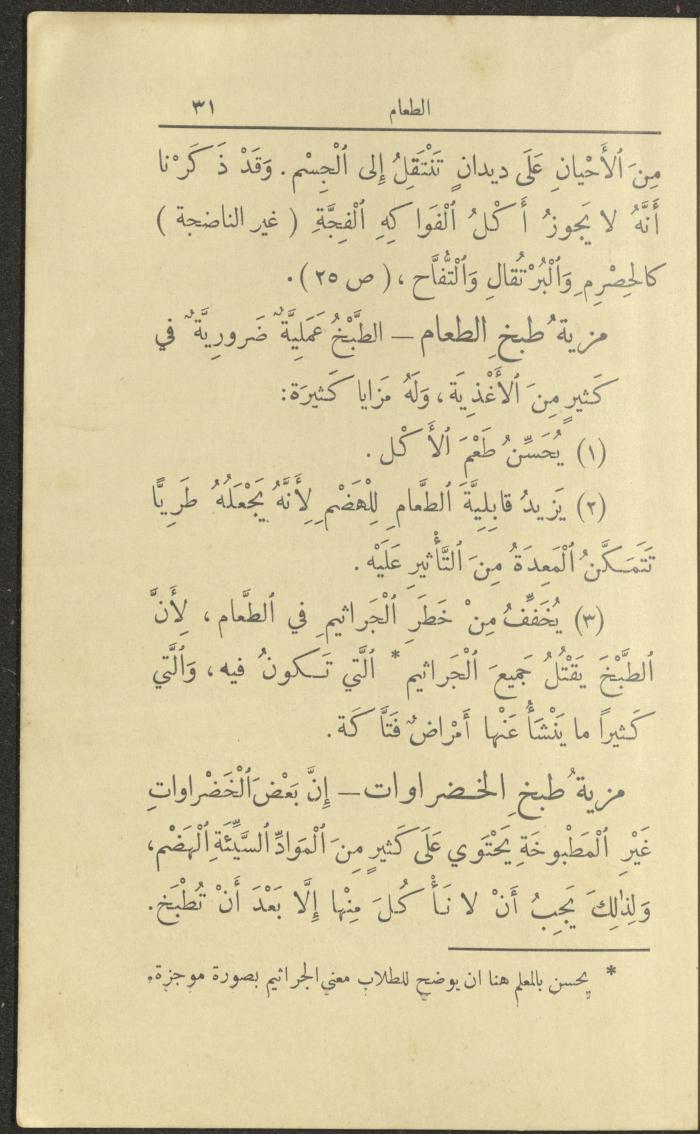 الطعام ٣١
مِنَ ٱلأَحْيانِ عَلَى ديدانٍ تَنْتَقِلُ إِلى ٱلْجِسْم . وَقَدْ ذَ كَرْنا
أَنَّهُ لا يَجوزُ أَ كْلُ ٱلْفَوا كِهِ ٱلْفِجَّةِ ( غير الناضجة )
كالحِصْرِمِ وَٱلْبُرْتُقالِ وَٱلْتُّفَّاح ، ( ص ٢٥ ) .
مزيةُ طبخِ الطعام – الطَّبْخُ عَمَلِيَّةٌ ضَرورِيَّةٌ في
كَثيرٍ مِنَ ٱلأَغْذِيَة ، وَلَهُ مَزايا كَثيرَة :
(١) يُحَسِّنُ طَعْمَ ٱلأَ كْل .
(٢) يَزيدُ قابِلِيَّةَ ٱلطَّعامِ لِلْهَضْمِ لِأَنَّهُ يَجْعَلُهُ طَرِيًّا
تَتَمَكَّنُ ٱلْمَعِدَةُ مِنَ ٱلتَّأْثيرِ عَلَيْه .
(٣) يُخَفِّفُ مِنْ خَطَرِ ٱلْجَراثيمِ في ٱلطَّعام ، لِأَنَّ
ٱلطَّبْخَ يَقْتُلُ جَميعَ ٱلْجَراثيم * ٱلَّتي تَكونُ فيه ، وَٱلَّتي
كَثيراً ما يَنْشَأُ عَنْها أَمْراضٌ فَتَّا كَة .
مزيةُ طبخِ الخضراوات – إِنَّ بَعْضَ ٱلْخَضْراواتِ
غَيْرِ ٱلْمَطْبوخَةِ يَحْتَوي عَلَى كَثيرٍ مِنَ ٱلْمَوادِّ ٱلسَّيِّئَةِ ٱلْهَضْم ،
وَلِذٰلِكَ يَجِبُ أَنْ لا نَأْ كُلَ مِنْها إِلَّا بَعْدَ أَنْ تُطْبَخ .
* يحسن بالمعلم هنا ان يوضح للطلاب معنى الجراثيم بصورة موجزة .